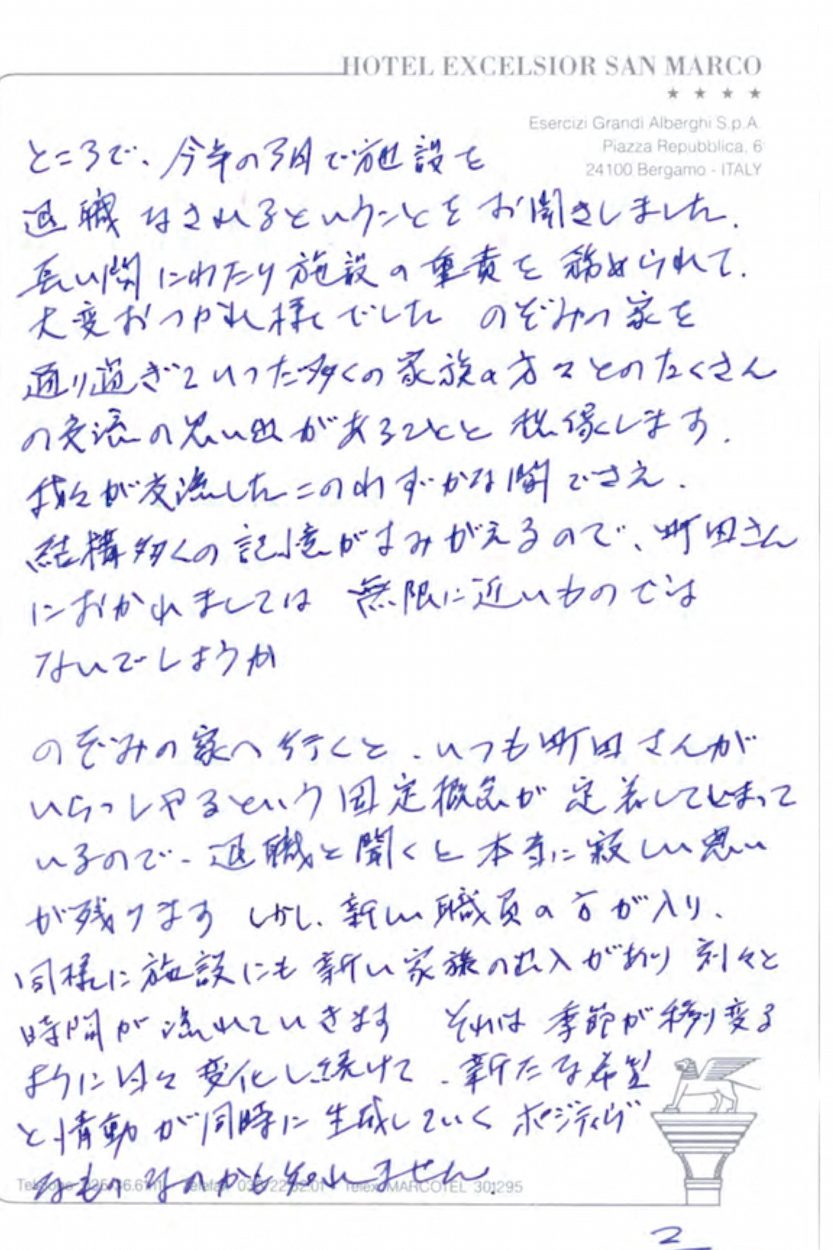 HOTEL EXCELSIOR SAN MARCO
★ ★ ★ ★
Esercizi Grandi Alberghi S.p.A.
Piazza Repubblica, 6
24100 Bergamo - ITALY
ところで、今年の3月で施設を
退職なされるということをお聞きしました。
長い間にわたり施設の重責を務められて、
大変おつかれ様でした のぞみの家を
通り過ぎていった多くの家族の方々とのたくさん
の交流の思い出があることと想像します。
我々が交流したこのわずかな間でさえ、
結構多くの記憶がよみがえるので、町田さん
におかれましては 無限に近いものでは
ないでしょうか
のぞみの家へ行くと、いつも町田さんが
いらっしゃるという固定概念が定着してしまって
いるので、退職と聞くと本当に寂しい思い
が残ります しかし、新しい職員の方が入り、
同様に施設にも新しい家族の出入があり 刻々と
時間が流れていきます それは 季節が移り変る
ように日々変化し続けて、新たな希望
と情動が同時に生成していくポジティヴ
なものなのかも知れません。
Telex MARCOTEL 301295
2